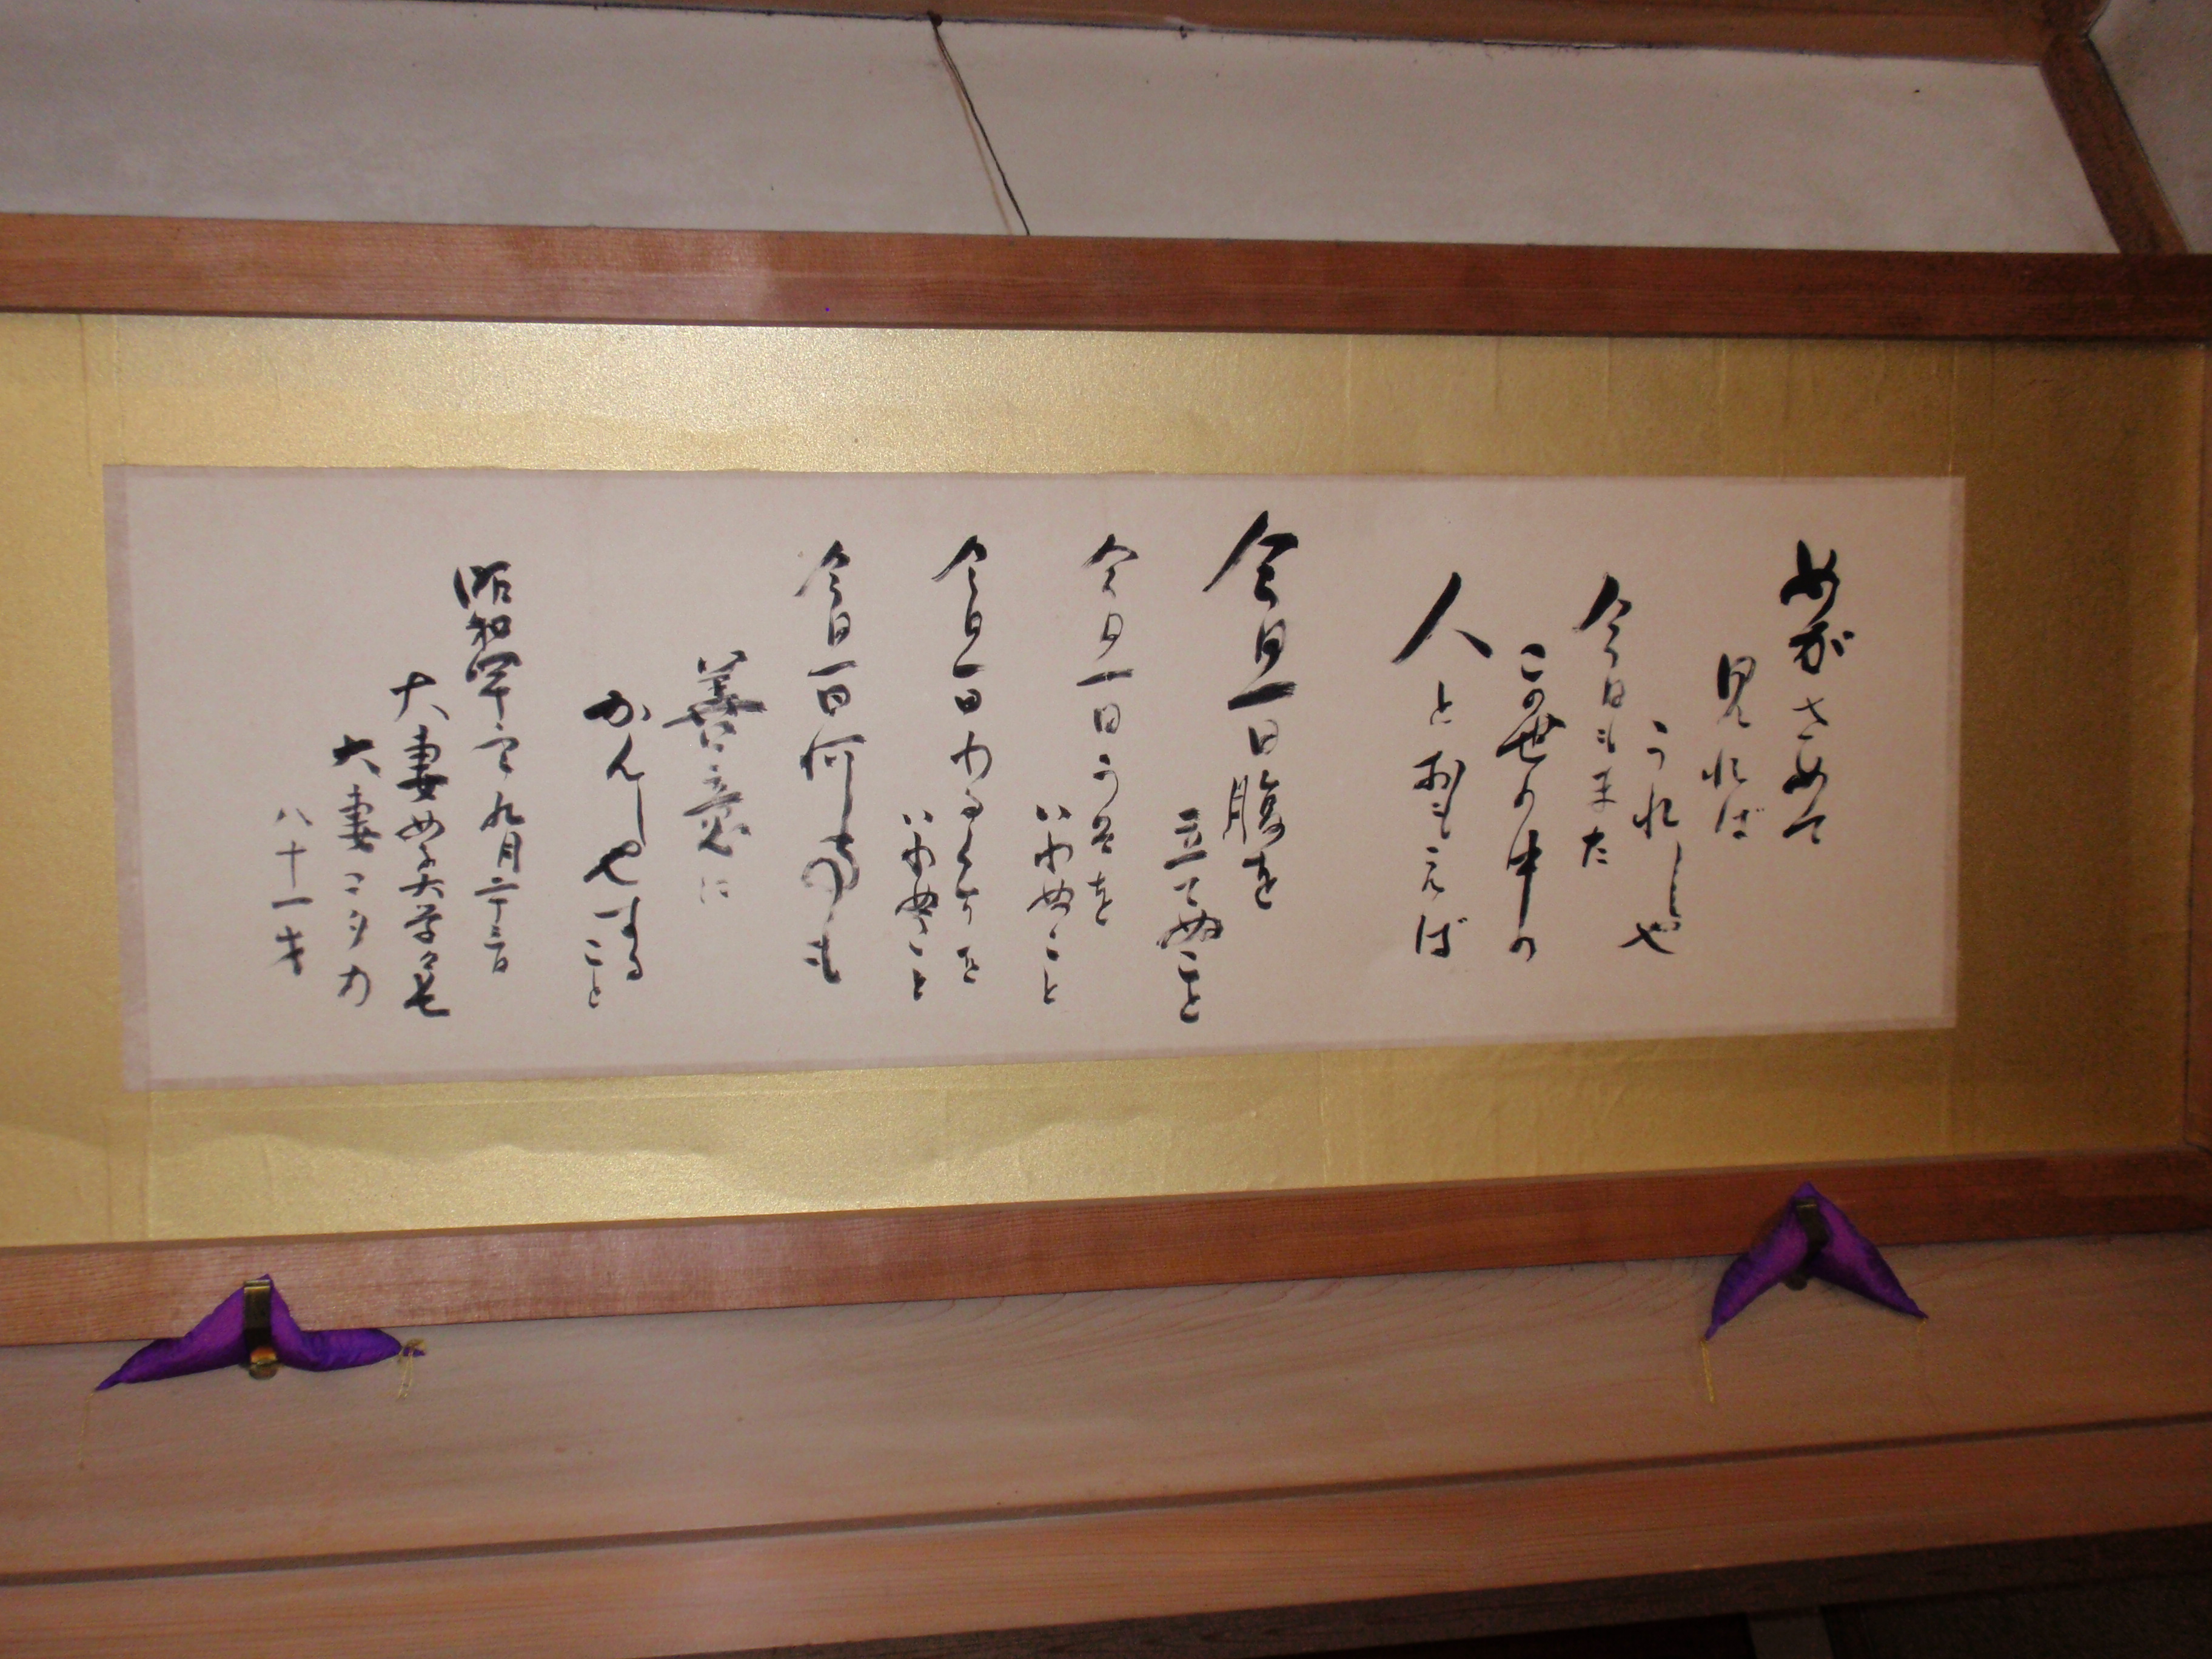 めがさめて
見れば
うれしや
今日もまた
この世の中の
人とおもえば
今日一日腹を
立てぬこと
今日一日うそを
いわぬこと
今日一日わるくちを
いわぬこと
今日一日何事も
善意に
かんしやする
こと
昭和四十
九月二十三日
大妻女子大学々長
大妻コタカ
八十一才